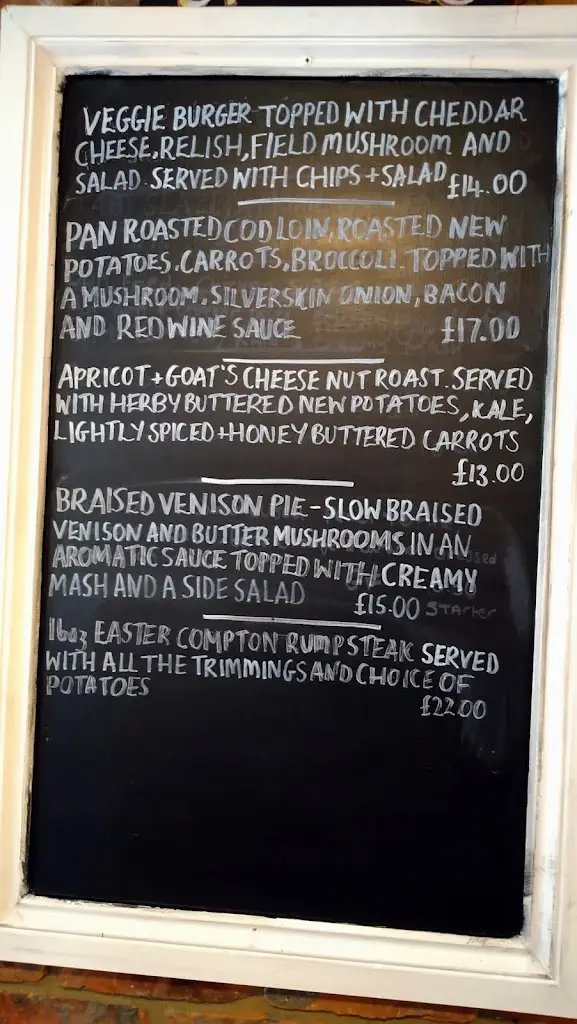 VEGGIE BURGER TOPPED WITH CHEDDAR
CHEESE, RELISH, FIELD MUSHROOM AND
SALAD. SERVED WITH CHIPS + SALAD £14.00
PAN ROASTED COD LOIN, ROASTED NEW
POTATOES, CARROTS, BROCCOLI. TOPPED WITH
A MUSHROOM, SILVERSKIN ONION, BACON
AND RED WINE SAUCE £17.00
APRICOT + GOAT'S CHEESE NUT ROAST. SERVED
WITH HERBY BUTTERED NEW POTATOES, KALE,
LIGHTLY SPICED + HONEY BUTTERED CARROTS
£13.00
BRAISED VENISON PIE - SLOW BRAISED
VENISON AND BUTTER MUSHROOMS IN AN
AROMATIC SAUCE TOPPED WITH CREAMY
MASH AND A SIDE SALAD £15.00 STARTER
16oz EASTER COMPTON RUMP STEAK SERVED
WITH ALL THE TRIMMINGS AND CHOICE OF
POTATOES
£22.00